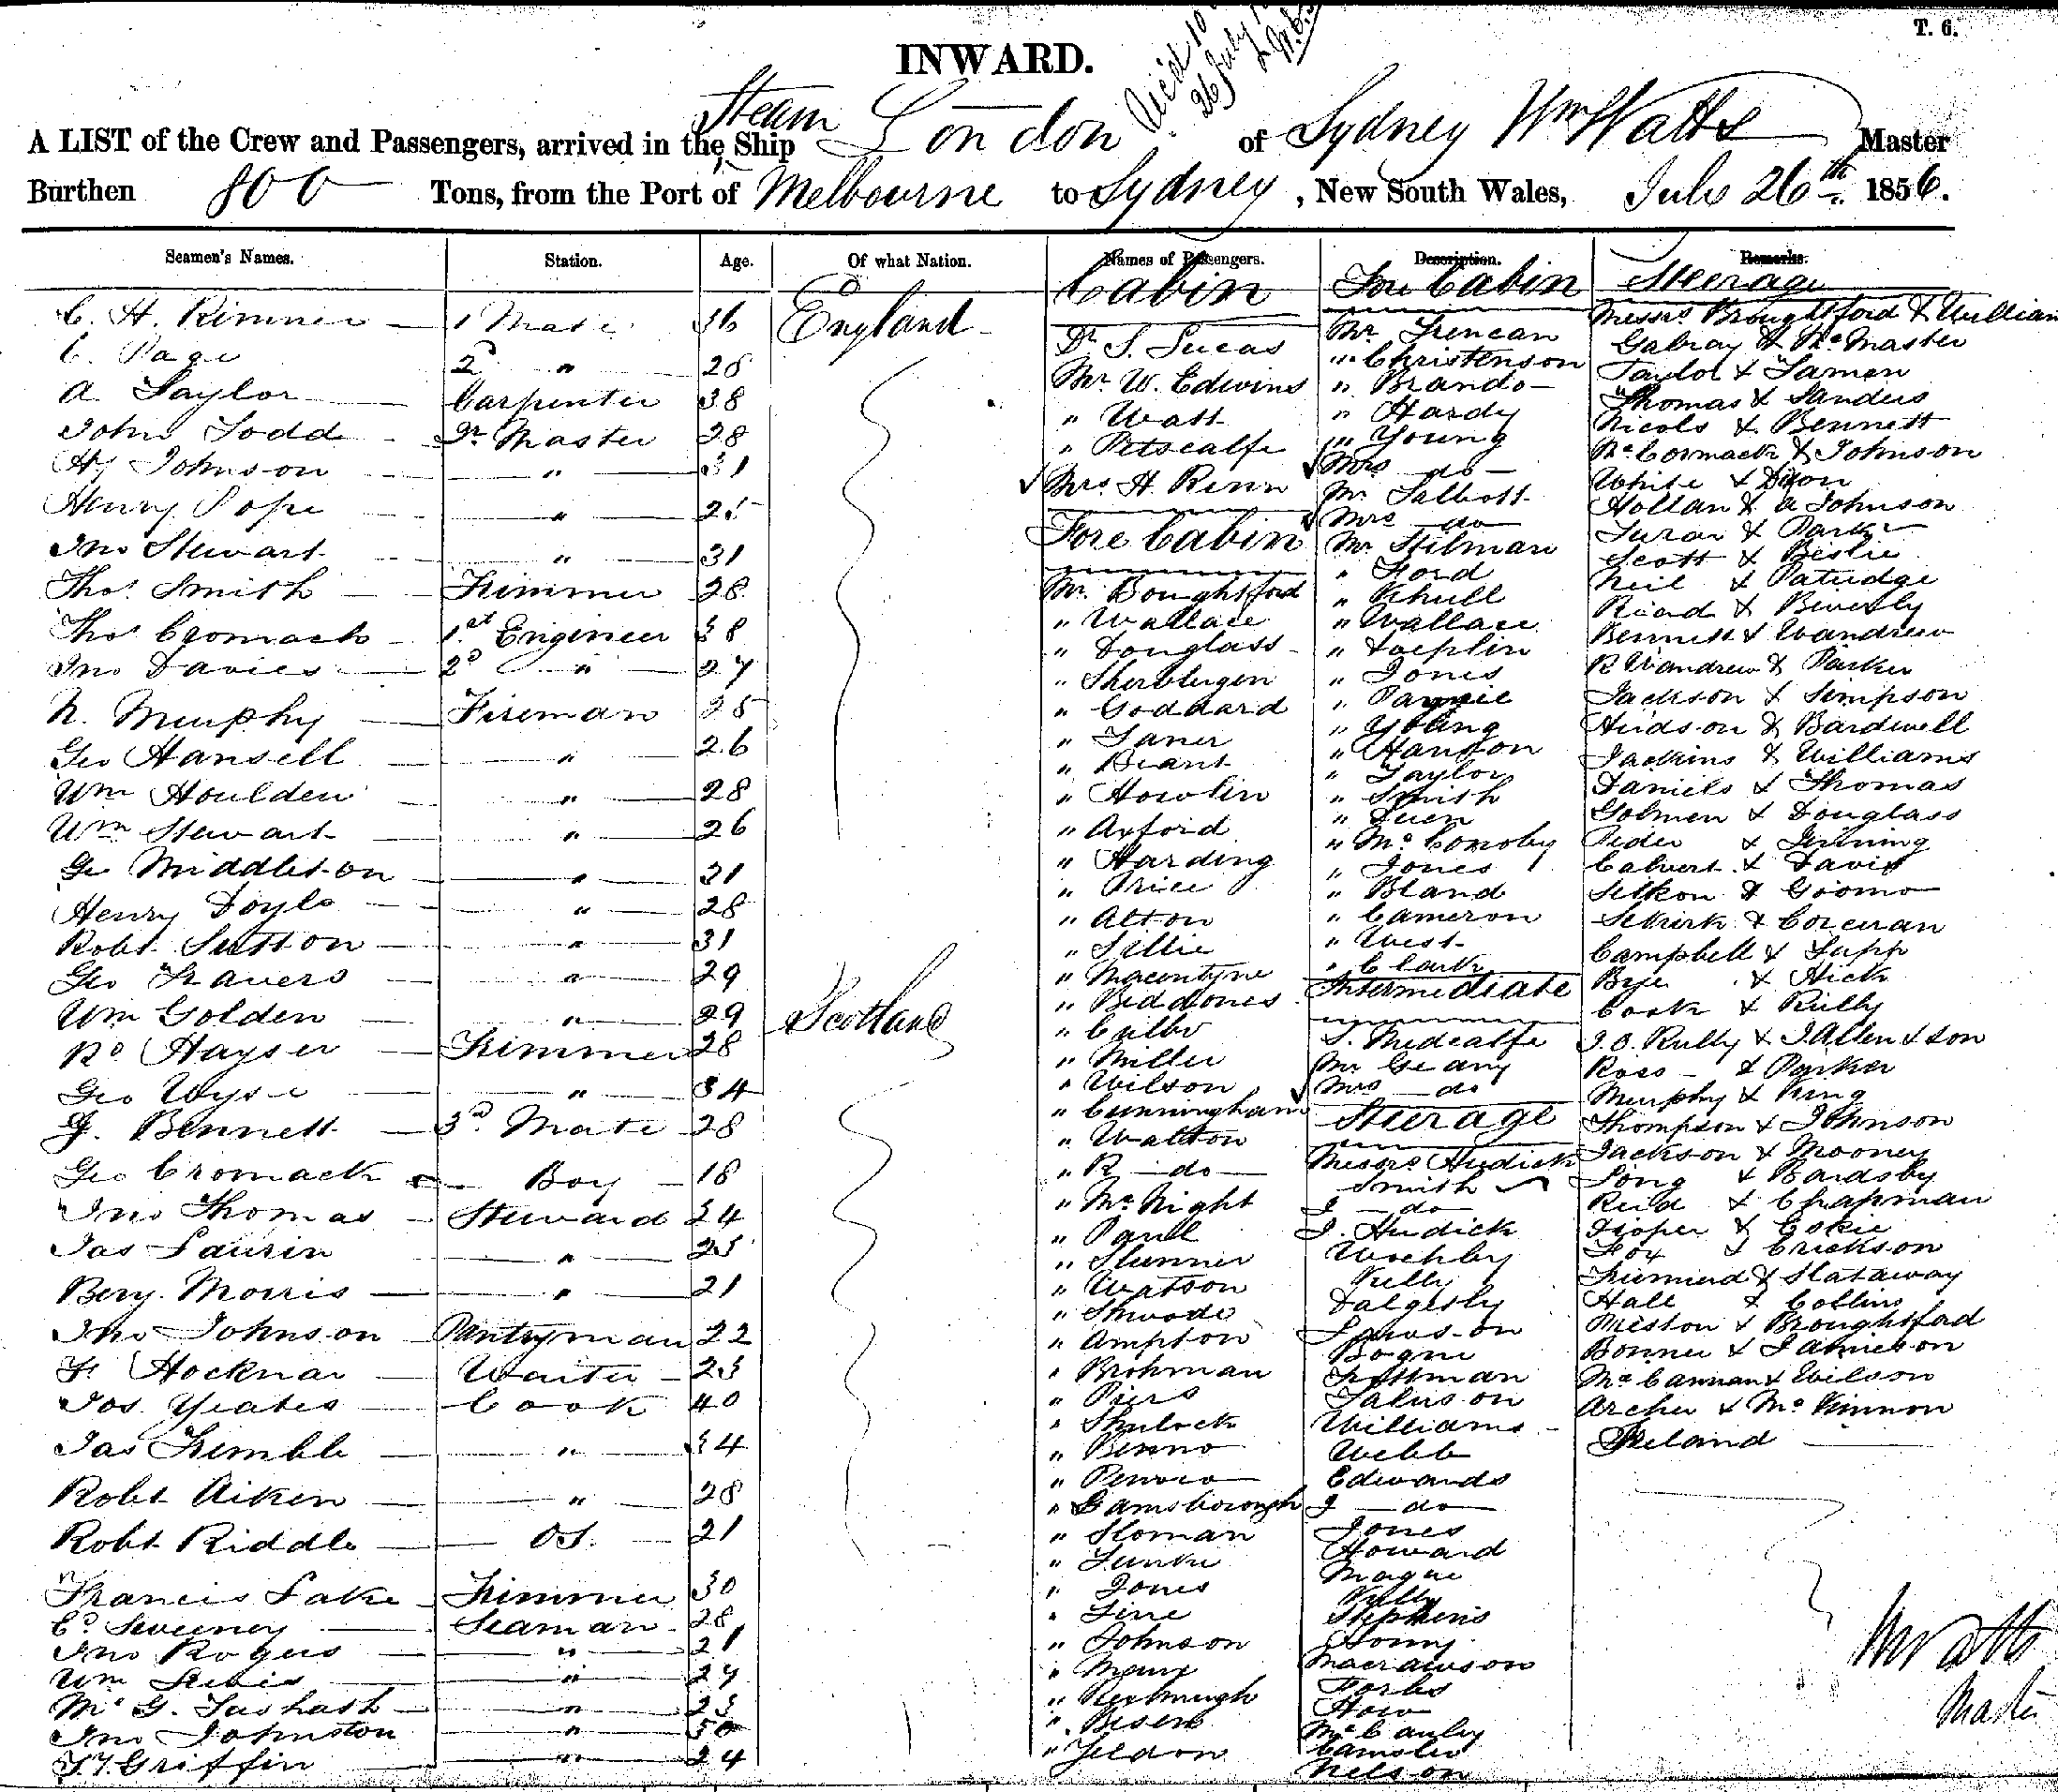 T. 6.
INWARD.
A LIST of the Crew and Passengers, arrived in the Steam Ship London of Sydney Wm Watts Master
Burthen 800 Tons, from the Port of Melbourne to Sydney, New South Wales, July 26th 1856.
Seamen's Names. Station. Age. Of what Nation. Names of Passengers. Description. Remarks.
C. H. Rimner 1 Mate 36 England
C. Page 2d " 28
A. Taylor Carpenter 38
John Todd Qr Master 28
Hy Johnson " 31
Henry Pope "
Jno Stewart " 31
Thos Smith Trimmer 28
Thos Cromack 1st Engineer 38
Jno Davies 2d " 27
N. Murphy Fireman 25
Geo Hansell " 26
Wm Houlden " 28
Wm Stewart " 26
Geo Middleton " 21
Henry Doyle " 28
Robt Sutton " 31
Geo Travers " 29
Wm Golden " 29 Scotland
Rd Hayser Trimmer 28
Geo Wyse " 34
G. Bennett 3d Mate 28
Geo Cromack Boy 18
Jno Thomas Steward 24
Jas Laurin " 23
Benj. Morris " 21
Jno Johnson Pantryman 22
Fr Hocknar Waiter 23
Jos. Yeates Cook 40
Jas Kemble " 34
Robt Aiken " 28
Robt Riddle OS. 21
Francis Lake Trimmer 30
Ed Sweeney Seaman 28
Jno Rogers " 21
Wm Lewis " 24
Mc G. Tashash " 23
Jno Johnston " 50
T. Griffin " 24
Cabin
Dr S. Lucas
Mr W. Edwins
" Watt
" Petscalfe
Mrs H. Renn
Fore Cabin
Mr. Boughtford
" Wallace
" Douglass
" Sherblugen
" Goddard
" Taner
" Briant
" Howlin
" Axford
" Harding
" Price
" Alton
" Lillie
" Macentyne
" Beddones
" Culbo
" Miller
" Wilson
" Cunningham
" Watton
" R do
" McNight
" Paull
" Slunner
" Watson
" Shwode
" Ampton
" Brohman
" Piers
" Shulock
" Benno
" Gainsborough
" Sloman
" Junke
" Jones
" Line
" Johnson
" Roxburugh
" Besent
" Yeldon
Fore Cabin
Mr Trencan
" Christenson
" Brando
" Hardy
" Young
Mrs do
Mr Talbott
Mrs do
Mr Stilman
" Ford
" Schull
" Wallace
" Toeplin
" Jones
" Young
" Hanson
" Taylor
" Smith
" Duen
" McConoby
" Jones
" Bland
" Cameron
" West
" Clark
Intermediate
S. Medcalfe
Mr Geany
Mrs do
Steerage
Messrs Hudick
Smith
J do
J. Hudick
Wochby
Kelly
Dalgesby
Lawson
Bogue
Trottman
Williams
Webb
Edwards
J do
Jones
Howard
Magne
Kelly
Stephens
Macrawson
Forbes
How
McCauley
Nelson
Steerage
Messrs Broughtford & William
Galray & McMaster
Taylor & Lamen
Thomas & Sanders
Nicols & Bennett
McCormack & Johnson
White & Dixon
Hollan & A Johnson
Turan & Parker
Scott & Beslie
Neil & Patridge
Read & Beverly
Bennett & Wandrew
R Wandrew & Parker
Jackson & Simpson
Hudson & Bardwell
Jackins & Williams
Daniels & Thomas
Golmen & Douglass
Peder & Jinning
Calvert & Davis
Setkon & Goomo
Selkirk & Corcoran
Campbell & Tupp
Bye & Hick
Cook & Rully
J. O. Rully & J Allen & Son
Ross & Parker
Murphy & King
Thompson & Johnson
Jackson & Mooney
Long & Bardsby
Reid & Chapman
Hooper & Eskie
Fox & Erickson
Hall & Collins
Preston & Broughtford
Bonner & Jamieson
McCannan & Wilson
Archer & McKinnon
Ireland
Wm Watts
Master